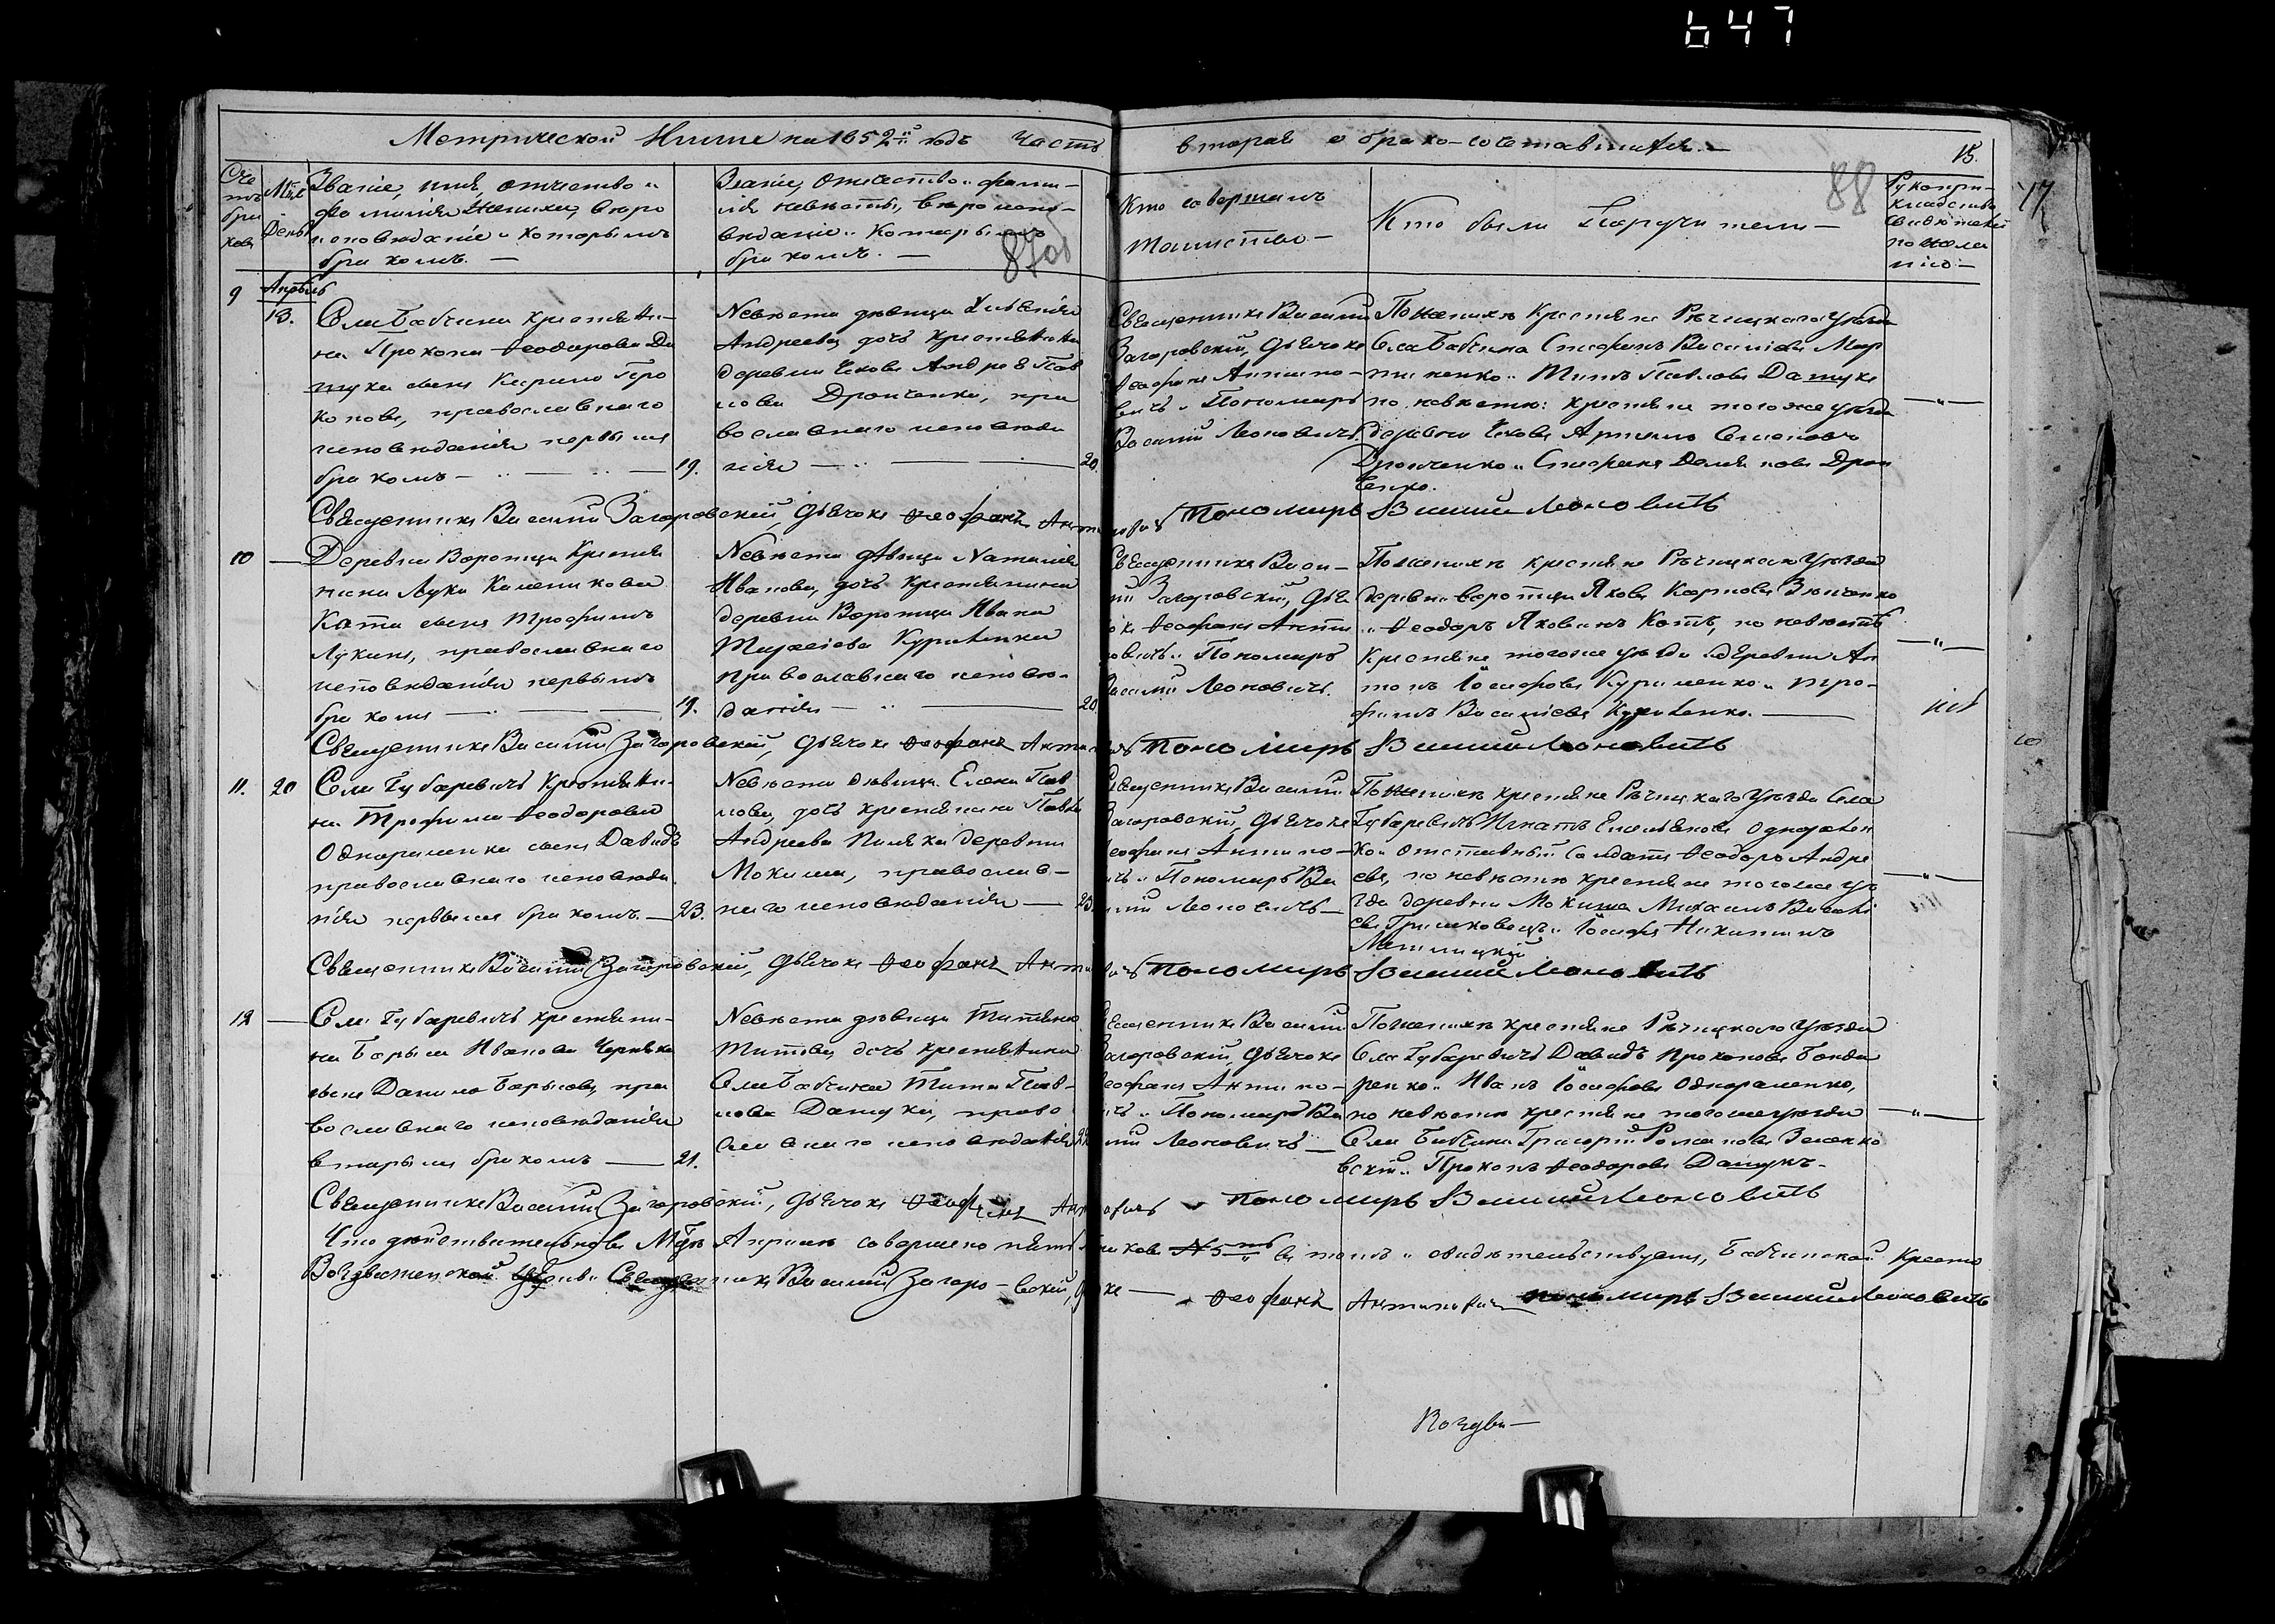 647
Метрической Книги на 1852й годъ Часть вторая о брако-сочетавшихся.—
15.
88
17
Счетъ браковъ
Мѣс. День
Званіе, имя, отчество и
фамилія жениха, вѣро
исповѣданіе и которымъ
бракомъ.—
Званіе, отчество и фами-
лія невѣсты, вѣроиспо-
вѣданіе и которымъ
бракомъ.—
Кто совершалъ
таинство—
Кто были Поручители—
Рукопри-
кладство
свидѣтелей
по жела
нію—
9
Апрѣль
13.
Села Бабчина крестьяни-
на Прокопа Ѳеодорова Да
шука сынъ Кирило Про
коповъ, православнаго
исповѣданія первымъ
бракомъ—
19.
Невѣста дѣвица
Андреева, дочь крестьянина
деревни Ехова Андрея Пав
лова Дронченки, пра
вославнаго исповѣда
нія—
20.
Священникъ Василій
Загоровскій, Дьячокъ
Ѳеофанъ Антипо-
вичъ и Пономарь
Василій Леоновичъ.
По женихѣ крестьяне Рѣчицкаго Уѣзда
Села Бабчина Стефанъ Василіевъ Мар
тиненко и Титъ Павловъ Дашукъ
по невѣстѣ: крестьяне тогоже уѣзда
деревни Ехова Артемъ Семеновъ
Дронченко и Стефанъ Дрон
ченко.
Священникъ Василій Загоровскій, Дьячокъ Ѳеофанъ Антиповичъ Пономарь Василій Леоновичъ
10
Деревни Воротца Крестья
нина Луки Каленикова
Кота сынъ Трофимъ
Лукинъ, православнаго
исповѣданія первымъ
бракомъ—
19.
Невѣста дѣвица Наталія
Иванова, дочь Крестьянина
деревни Воротца Ивана
Куриленки
православнаго исповѣ-
данія—
20.
Священникъ Васи-
лій Загоровскій, Дья
чокъ Ѳеофанъ Анти
повичъ и Пономарь
Василій Леоновичъ.
По женихѣ крестьяне Рѣчицкаго Уѣзда
деревни Воротца Яковъ Карповъ Зинченко
и Ѳеодоръ Яковинъ Котъ, по невѣстѣ
крестьяне тогоже уѣзда и деревни Ан
тонъ Іосифовъ Куриленко и Тро-
фимъ Василіевъ Куриленко.—
Священникъ Василій Загоровскій, Дьячокъ Ѳеофанъ Антиповичъ Пономарь Василій Леоновичъ
11.
20
Села Губаревичъ Крестьяни-
на Трофима Ѳеодорова
Одноралченка сынъ Давидъ
православнаго исповѣда
нія первымъ бракомъ.—
23.
Невѣста дѣвица Елена Пав
лова, дочь крестьянина Павла
Андреева деревни
Мокиша, православ-
наго исповѣданія—
Священникъ Василій
Загоровскій, Дьячокъ
Ѳеофанъ Антипо-
вичъ и Пономарь Ва
силій Леоновичъ—
По женихѣ крестьяне Рѣчицкаго Уѣзда Села
Губаревичъ Игнатъ Емельяновъ
ко и отставный солдатъ Ѳеодоръ Андре
евъ, по невѣстѣ крестьяне тогоже уѣ
зда деревни Мокиша Михаилъ Василі
евъ Гришковецъ и Іосифъ Никитинъ
Священникъ Василій Загоровскій, Дьячокъ Ѳеофанъ Антиповичъ Пономарь Василій Леоновичъ
12
Села Губаревичъ крестьяни-
на Бориса Иванова Черняка
сынъ Данило Борисовъ, пра
вославнаго исповѣданія
вторымъ бракомъ—
21.
Невѣста дѣвица Татьяна
Титова, дочь крестьянина
Села Бабчина Тита Пав-
лова Дашуки, право
славнаго исповѣданія
Священникъ Василій
Загоровскій, Дьячокъ
Ѳеофанъ Антипо-
вичъ и Пономарь Ва
силій Леоновичъ—
По женихѣ крестьяне Рѣчицкаго Уѣзда
Села Губаревичъ Давидъ Прокоповъ Бонда
ренко и Иванъ Іосифовъ Одноралченко,
по невѣстѣ крестьяне тогоже уѣзда
Села Бабчина Григорій Романовъ Зеленко
вскій и Прокопъ Ѳеодоровъ Дашукъ.
Священникъ Василій Загоровскій, Дьячокъ Ѳеофанъ Антиповичъ Пономарь Василій Леоновичъ
Что дѣйствительно въ Мцѣ Апрѣлѣ совершено пять браковъ №5ть въ томъ и свидѣтельствуемъ, Бабчинской Кресто
Воздвиженской Церкви Священникъ Василій Загоровскій, Дьячокъ— Ѳеофанъ Антиповичъ пономарь Василій Леоновичъ
Воздви—